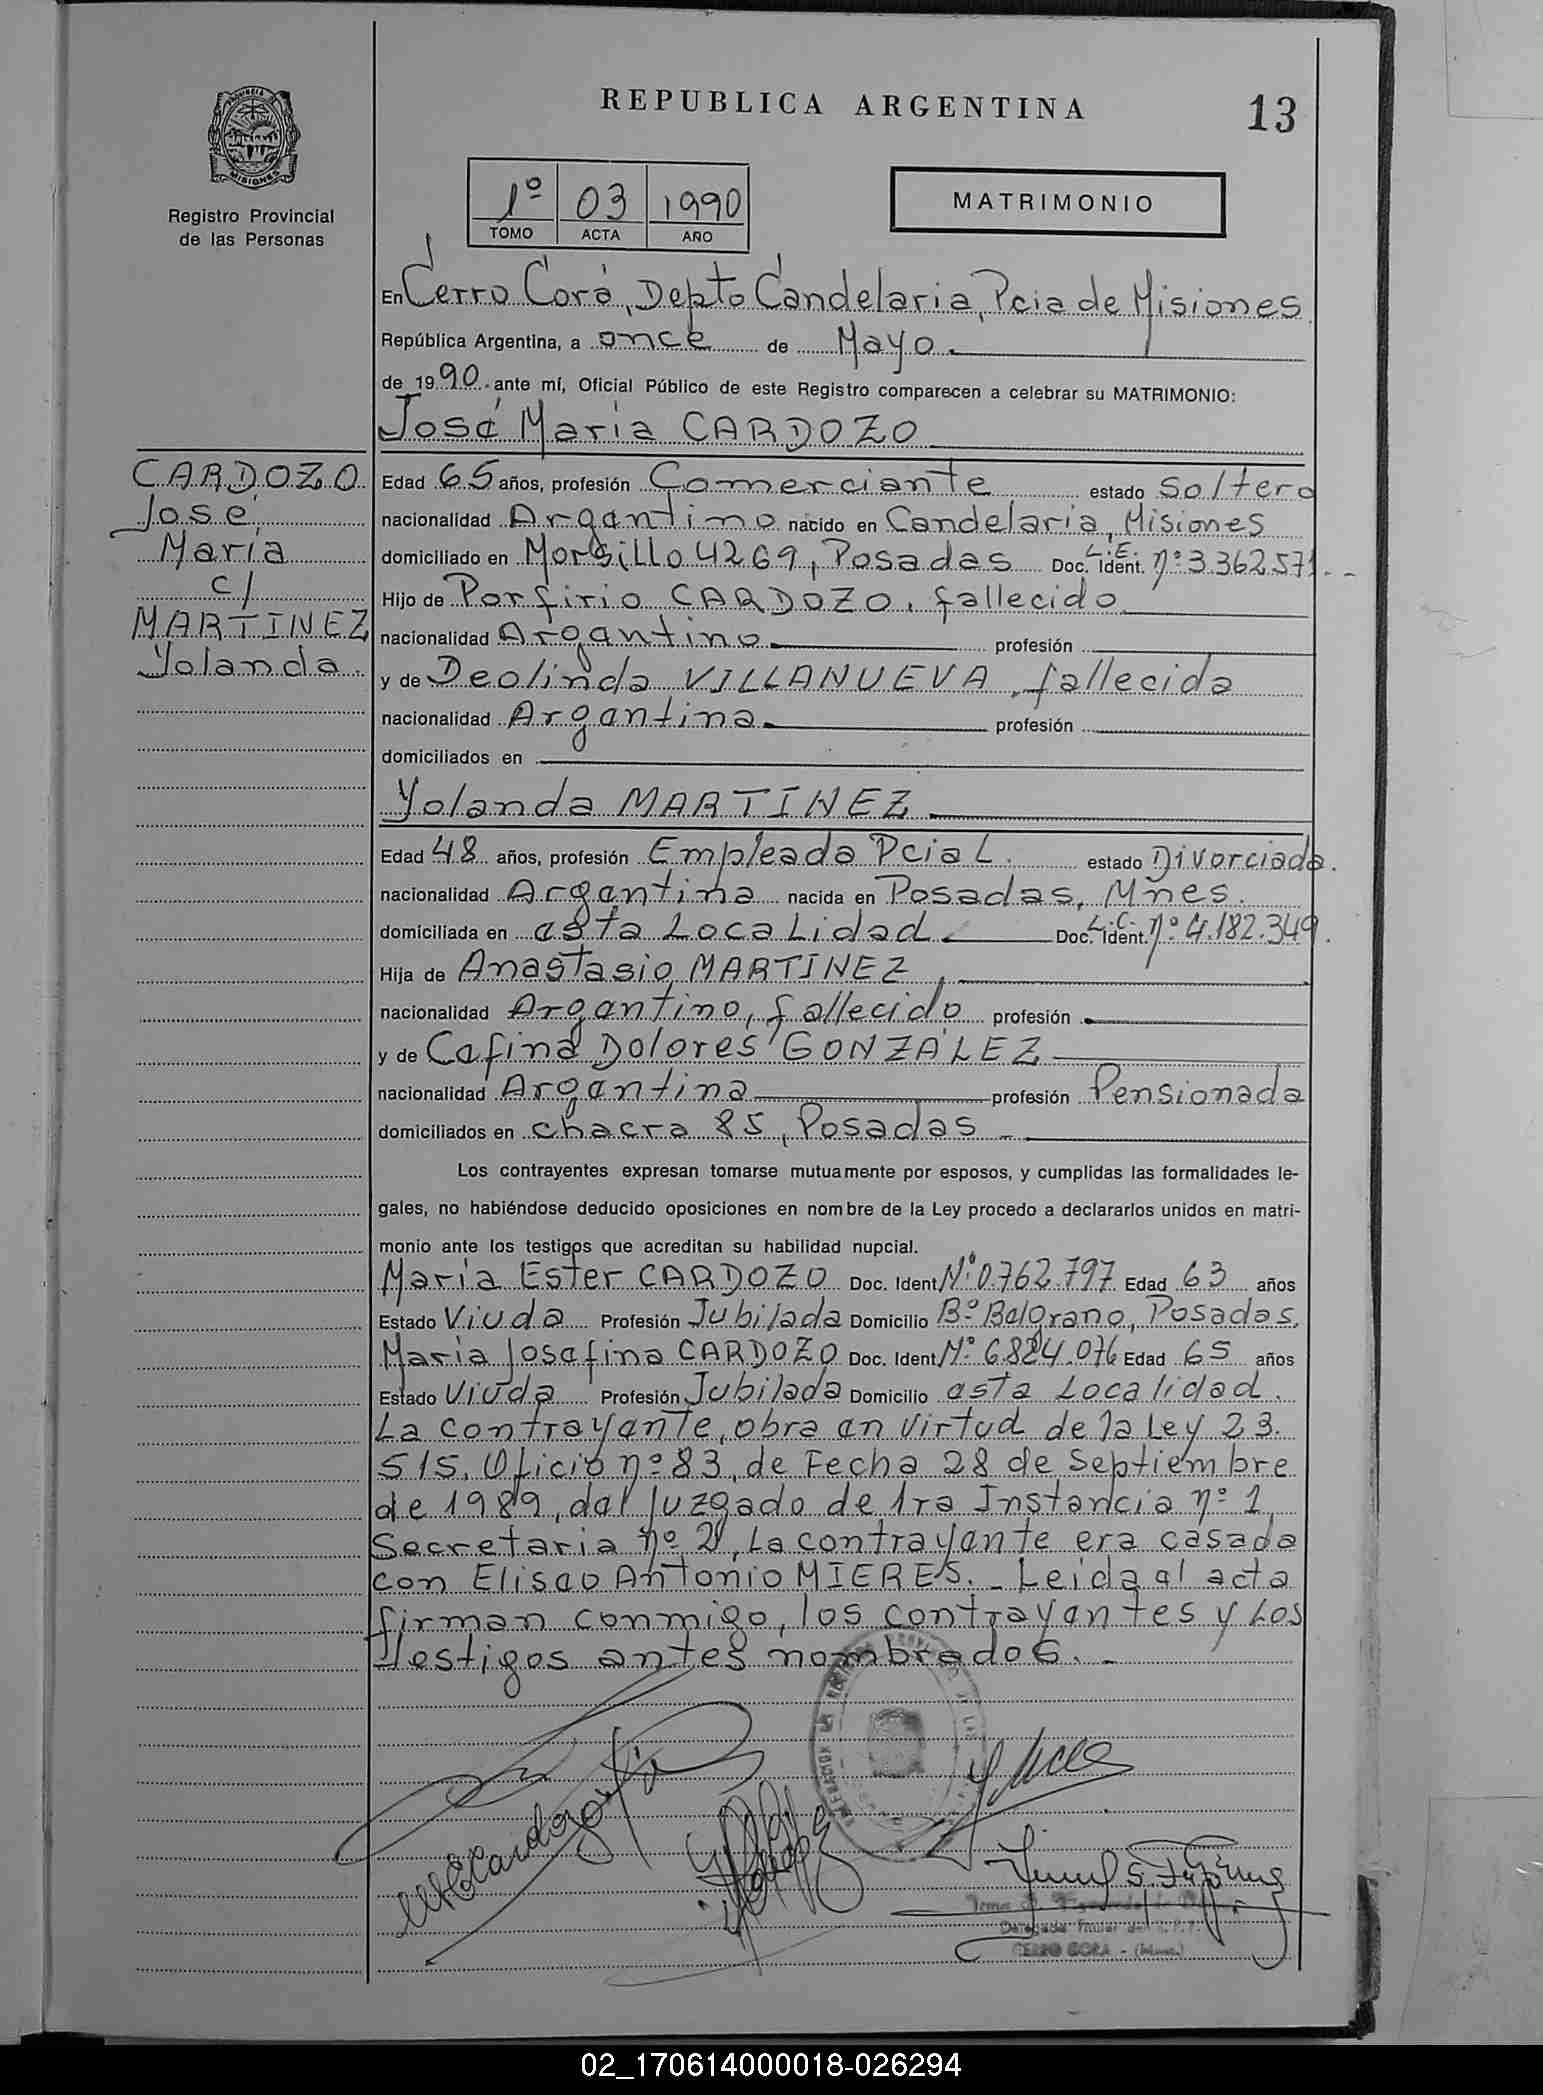 REPUBLICA ARGENTINA
13
PROVINCIA DE
MISIONES
Registro Provincial
de las Personas
1º 03 1990
TOMO ACTA AÑO
MATRIMONIO
En Cerro Corá, Depto Candelaria, Pcia de Misiones
República Argentina, a once de Mayo.
de 1990. ante mí, Oficial Público de este Registro comparecen a celebrar su MATRIMONIO:
José Maria CARDOZO
CARDOZO
José
María
c/
MARTINEZ
Yolanda.
Edad 65 años, profesión Comerciante estado soltero
nacionalidad Argentino nacido en Candelaria, Misiones
domiciliado en Morcillo 4269, Posadas Doc. Ident. L.E. nº 3.362.571.--
Hijo de Porfirio CARDOZO, fallecido
nacionalidad Argentino profesión
y de Deolinda VILLANUEVA, fallecida
nacionalidad Argentina profesión
domiciliados en
Yolanda MARTINEZ
Edad 48 años, profesión Empleada Pcial. estado Divorciada.
nacionalidad Argentina nacida en Posadas, Mnes.
domiciliada en esta Localidad. Doc. Ident. L.C. nº 4.182.349.
Hija de Anastasio MARTINEZ,
nacionalidad Argentino, fallecido profesión
y de Cefina Dolores GONZALEZ
nacionalidad Argentina profesión Pensionada
domiciliados en chacra 85, Posadas -
Los contrayentes expresan tomarse mutuamente por esposos, y cumplidas las formalidades le-
gales, no habiéndose deducido oposiciones en nombre de la Ley procedo a declararlos unidos en matri-
monio ante los testigos que acreditan su habilidad nupcial.
Maria Ester CARDOZO Doc. Ident Nº 0.762.797 Edad 63 años
Estado Viuda Profesión Jubilada Domicilio Bº Belgrano, Posadas.
Maria Josefina CARDOZO Doc. Ident Nº 6.824.076 Edad 65 años
Estado Viuda Profesión Jubilada Domicilio esta Localidad.
La contrayente, obra en virtud de la Ley 23.
515, Oficio nº 83, de Fecha 28 de Septiembre
de 1989, del Juzgado de 1ra Instancia nº 1,
Secretaria nº 2, La contrayente era casada
con Eliseo Antonio MIERES.- Leida el acta
firman conmigo, los contrayentes y Los
testigos antes nombrados.-
M E Cardozo
CERRO CORA - (Mnes.)
02_170614000018-026294